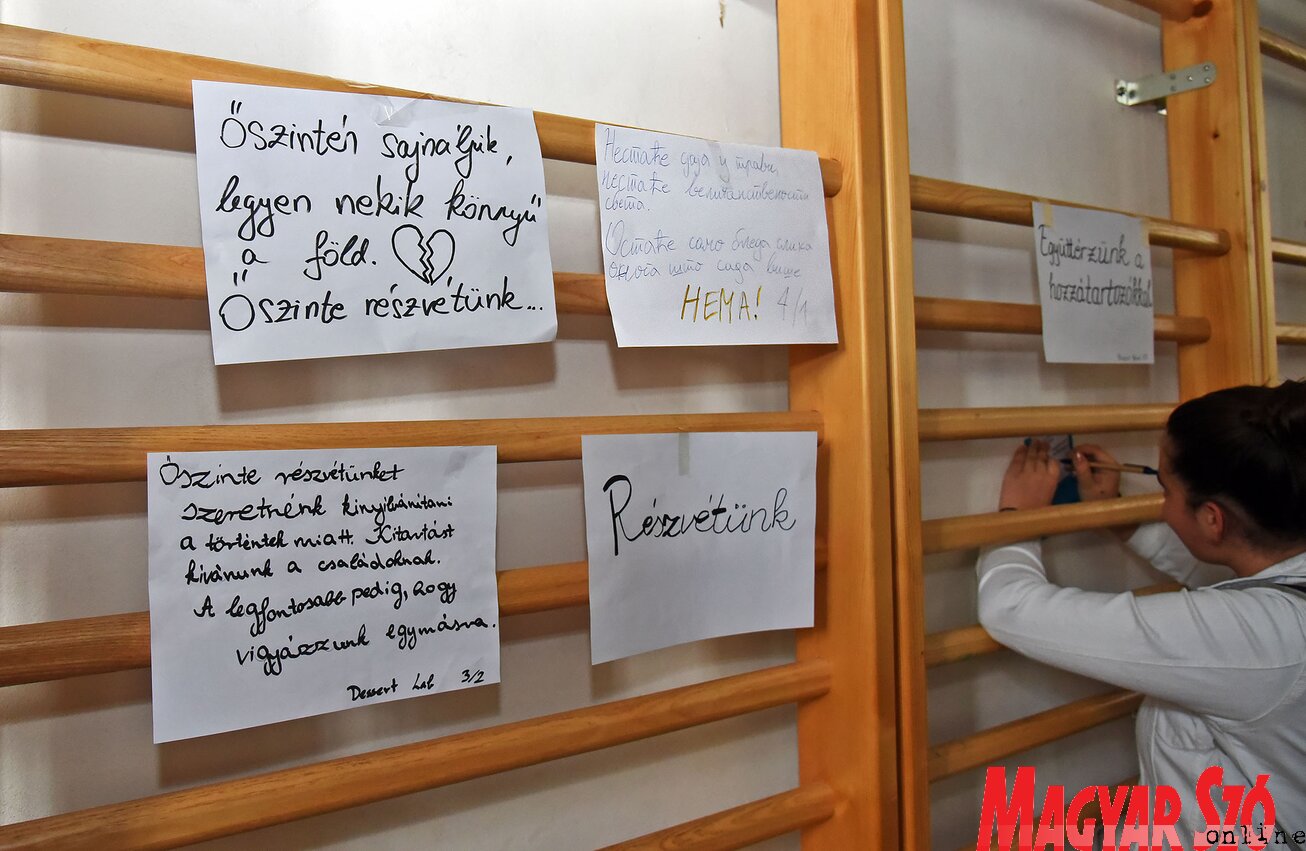 Őszintén sajnáljuk,
legyen nekik könnyű
a föld.
Őszinte részvétünk...
Нестаће сјаја у трави,
нестаће величанствености
света.
Остаће само бледа слика
онога што сада више
НЕМА! 4/1
Együttérzünk a
hozzátartozókkal
Őszinte részvétünket
szeretnénk kinyilvánítani
a történtek miatt. Kitartást
kívánunk a családoknak.
A legfontosabb pedig, hogy
vigyázzunk egymásra.
Dessert Lab 3/2
Részvétünk
MAGYAR SZÓ
online